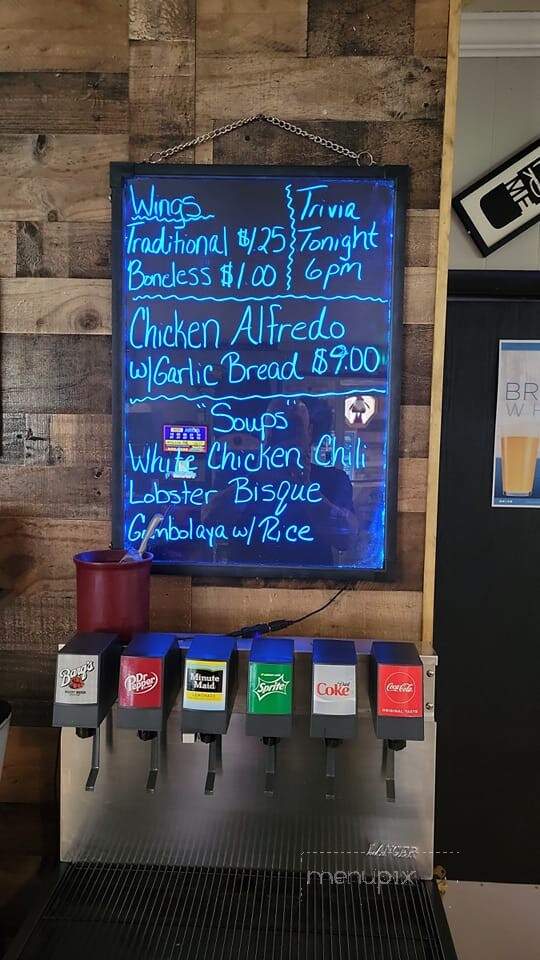 Wings
Traditional $1.25
Boneless $1.00
Trivia
Tonight
6pm
Chicken Alfredo
w/Garlic Bread $9.00
"Soups"
White Chicken Chili
Lobster Bisque
Gumbolaya w/ Rice
ME
BR
Barq's
Dr Pepper
Minute Maid
LEMONADE
Sprite
Diet Coke
Coca-Cola
ORIGINAL TASTE
LANCER
menupix